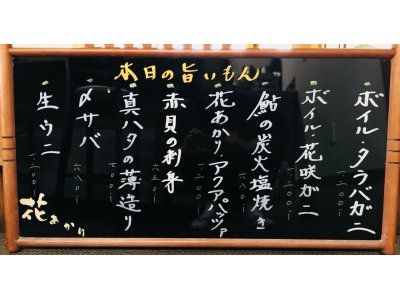 本日の旨いもん
ボイル・タラバガニ
一、二〇〇-
ボイル・花咲ガニ
一、二〇〇-
鮎の炭火塩焼き
六八〇-
花あかりアクアパッツァ
一、二〇〇-
赤貝の刺身
真ハタの薄造り
〆サバ
六八〇-
生ウニ
一、二〇〇-
花あかり